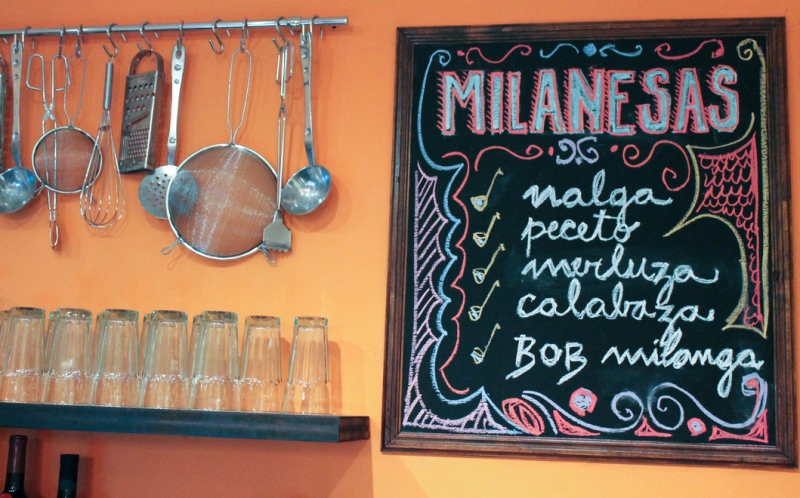 MILANESAS
nalga
peceto
merluza
calabaza
BOB milanga